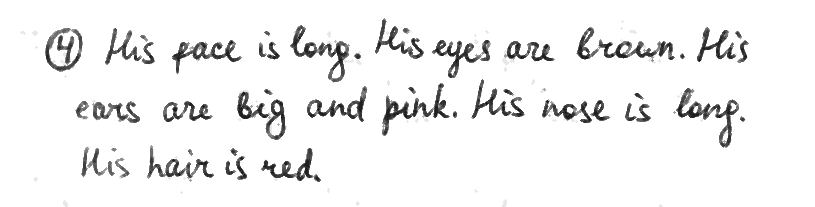 ④ His face is long. His eyes are brown. His
ears are big and pink. His nose is long.
His hair is red.